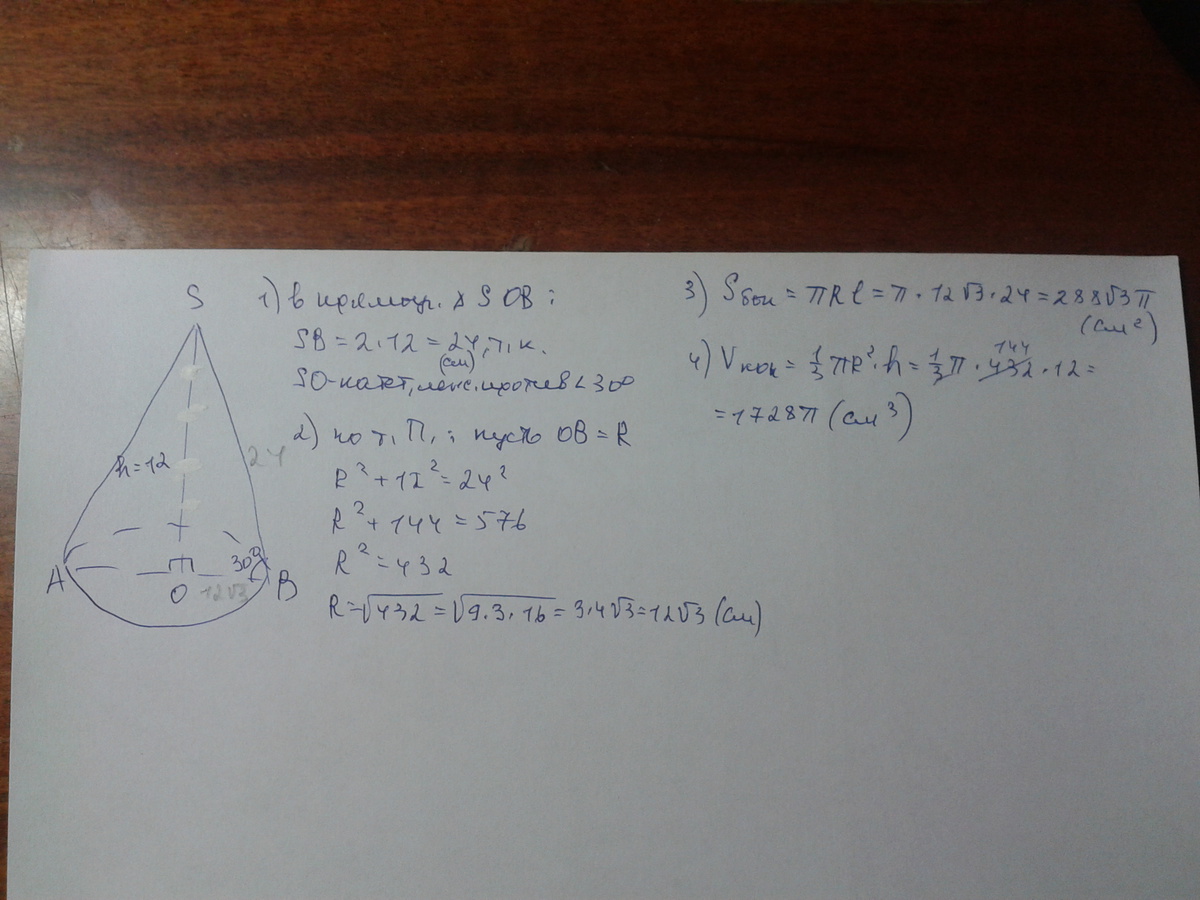 S
h=12
24
A
O
12√3
30°
B
1) в прямоуг. △ SOB:
SB = 2·12 = 24, т.к.
(см)
SO-катет, леж. против ∠30°
2) по т. П.: пусть OB = R
R² + 12² = 24²
R² + 144 = 576
R² = 432
R = √432 = √9·3·16 = 3·4√3 = 12√3 (см)
3) Sбок = πRl = π·12√3·24 = 288√3π
(см²)
4) Vкон = 1/3 πR²·h = 1/3 π·432·12 =
144
= 1728π (см³)